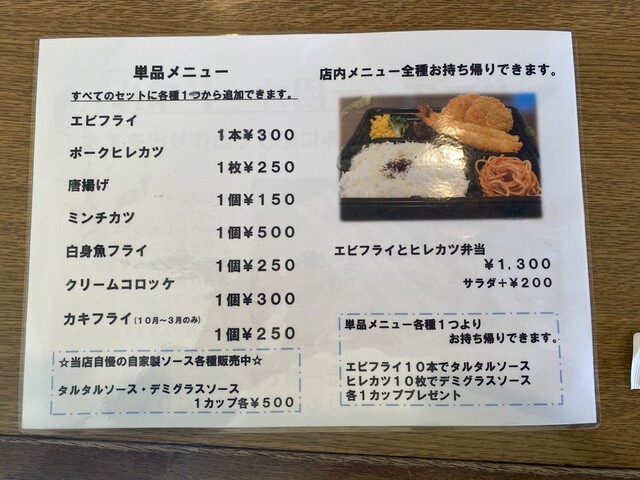 単品メニュー
すべてのセットに各種１つから追加できます。
エビフライ
１本￥３００
ポークヒレカツ
１枚￥２５０
唐揚げ
１個￥１５０
ミンチカツ
１個￥５００
白身魚フライ
１個￥２５０
クリームコロッケ
１個￥３００
カキフライ(１０月～３月のみ)
１個￥２５０
☆当店自慢の自家製ソース各種販売中☆
タルタルソース・デミグラスソース
１カップ各￥５００
店内メニュー全種お持ち帰りできます。
エビフライとヒレカツ弁当
￥１,３００
サラダ＋￥２００
単品メニュー各種１つより
お持ち帰りできます。
エビフライ１０本でタルタルソース
ヒレカツ１０枚でデミグラスソース
各１カッププレゼント